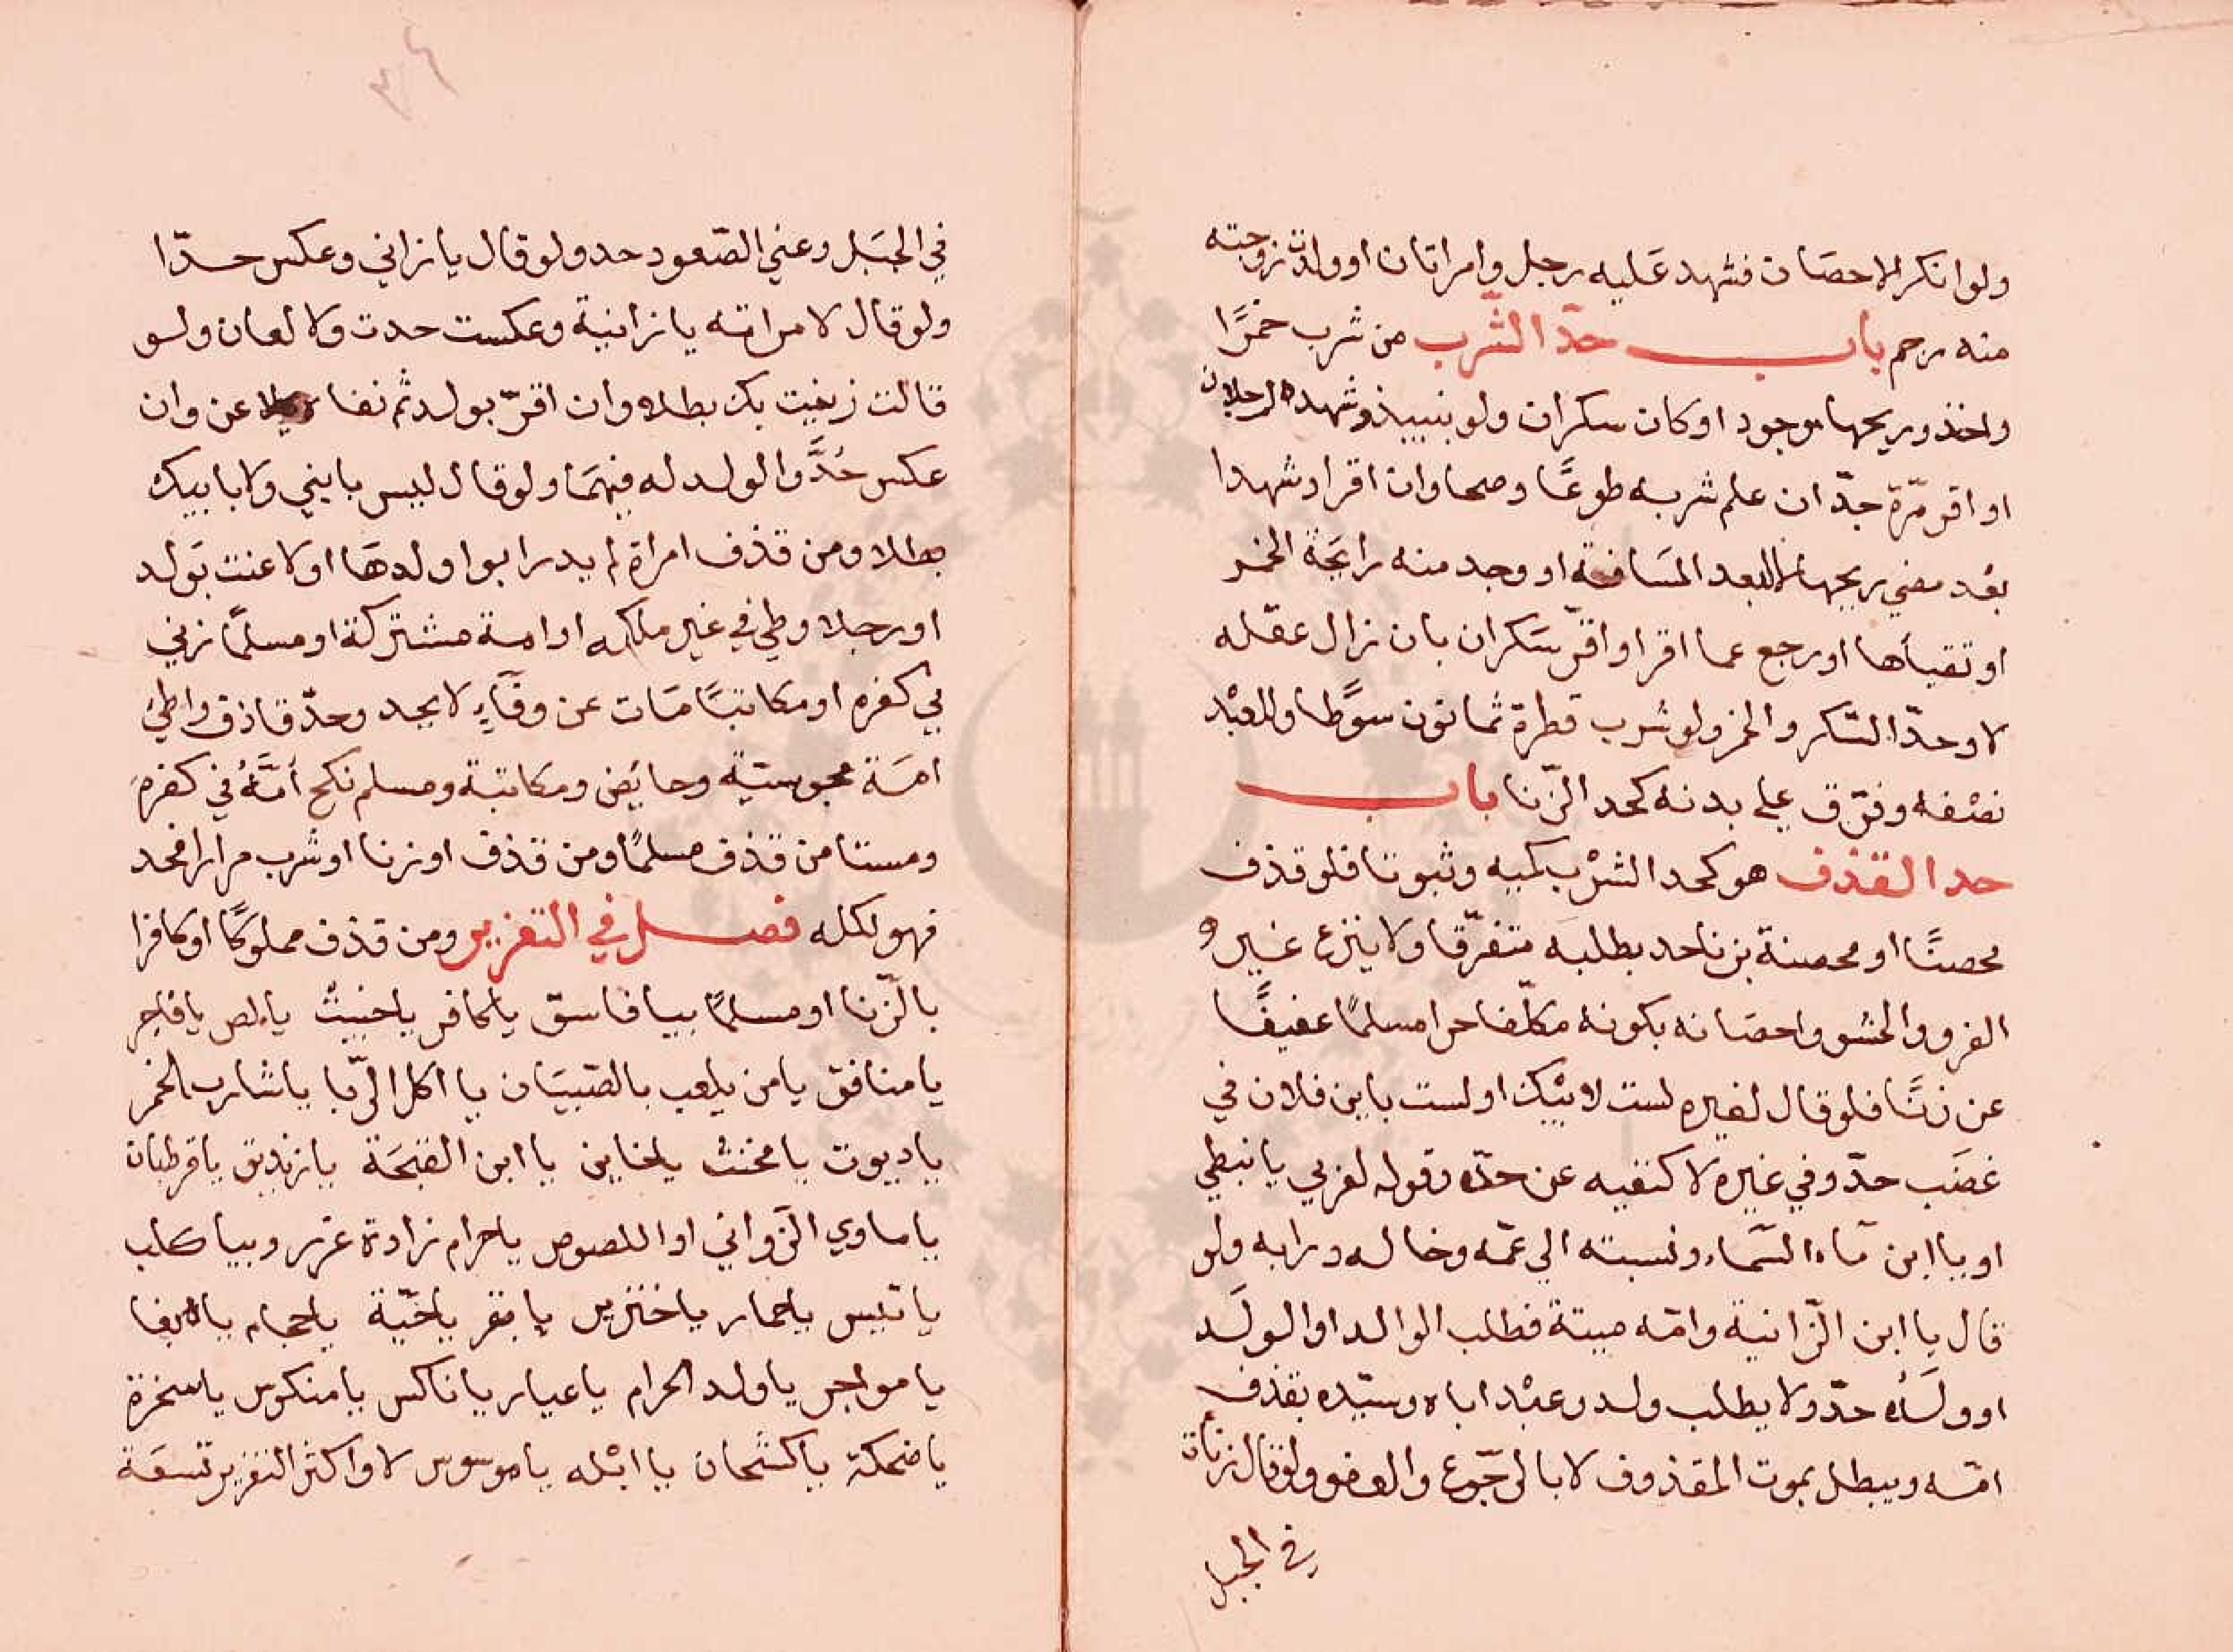 ولو انكر الاحصان فشهد عليه رجل وامراتان او ولدت زوجته
منه رجم باب حدّ الشّرب من شرب خمرًا
واخذ وريحها موجود او كان سكران ولو بنبيذ وشهد رجلان
او اقر مرّة حدّ ان علم شربه طوعًا وصحا وان اقر او شهدا
بعد مضي ريحها لا لبعد المسافة او وجد منه رايحة الخمر
او تقيأها او رجع عما اقر او اقرّ سكران بان زال عقله
لا وحدّ السّكر والخمر ولو شرب قطرة ثمانون سوطًا وللعبد
نصفه وفرّق على بدنه كحد الزّنا باب
حد القذف هو كحد الشرب كمية وثبوتا فلو قذف
محصنًا او محصنة بزنا حد بطلبه متفرّقا ولا ينزع غير
الفرو والحشو واحصانه بكونه مكلّفا حرا مسلمًا عفيفًا
عن زنًا فلو قال لغيره لست لابيك او لست بابن فلان في
غضب حدّ وفي غيره لا كنفيه عن جدّه وقوله لعربي يا نبطي
او يا ابن ماء السّماء ونسبته الي عمّه وخاله ورابه ولو
قال يا ابن الزّانية وامّه ميتة فطلب الوالد او الولد
او ولده حدّ ولا يطلب ولد وعبد اباه وسيّده بقذف
امّه ويبطل بموت المقذوف لا بالرّجوع والعفو ولو قال زنات
في الجبل
في الجبل وعني الصّعود حد ولو قال يا زاني وعكس حدّا
ولو قال لامراته يا زانية وعكست حدت ولا لعان ولو
قالت زنيت بك بطلا وان اقرّ بولد ثم نفاه لاعن وان
عكس حُدَّ والولد له فيهما ولو قال ليس بابني ولا بابيك
بطلا ومن قذف امراة لم يدر ابو اولدها او لاعنت بولد
او رجلا وطي في غير ملكه او امة مشتركة او مسلمًا زني
في كفره او مكاتبًا مات عن وفاء لا يحد وحدّ قاذف واطئ
امة مجوسيّة وحايض ومكاتبة ومسلم نكح أمّهُ في كفره
ومستامن قذف مسلمًا ومن قذف او زنا او شرب مرارا فحد
فهو لكله فصل في التعزير ومن قذف مملوكًا او كافرا
بالزّنا او مسلمًا بيا فاسق يا كافر يا خبيث يا لص يا فاجر
يا منافق يا من يلعب بالصّبيان يا اكل الرّبا يا شارب الخمر
يا ديوث يا مخنث يا خاين يا ابن القحبة يا زنديق يا قرطبان
يا ماوي الزّواني او اللصوص يا حرام زادة عزر وبيا كلب
يا تيس يا حمار يا خنزير يا بقر يا حيّة يا حجام يا بغا
يا مواجر يا ولد الحرام يا عيار يا ناكس يا منكوس يا سخرة
يا ضحكة يا كشحان يا ابله يا موسوس لا واكثر التعزير تسعة